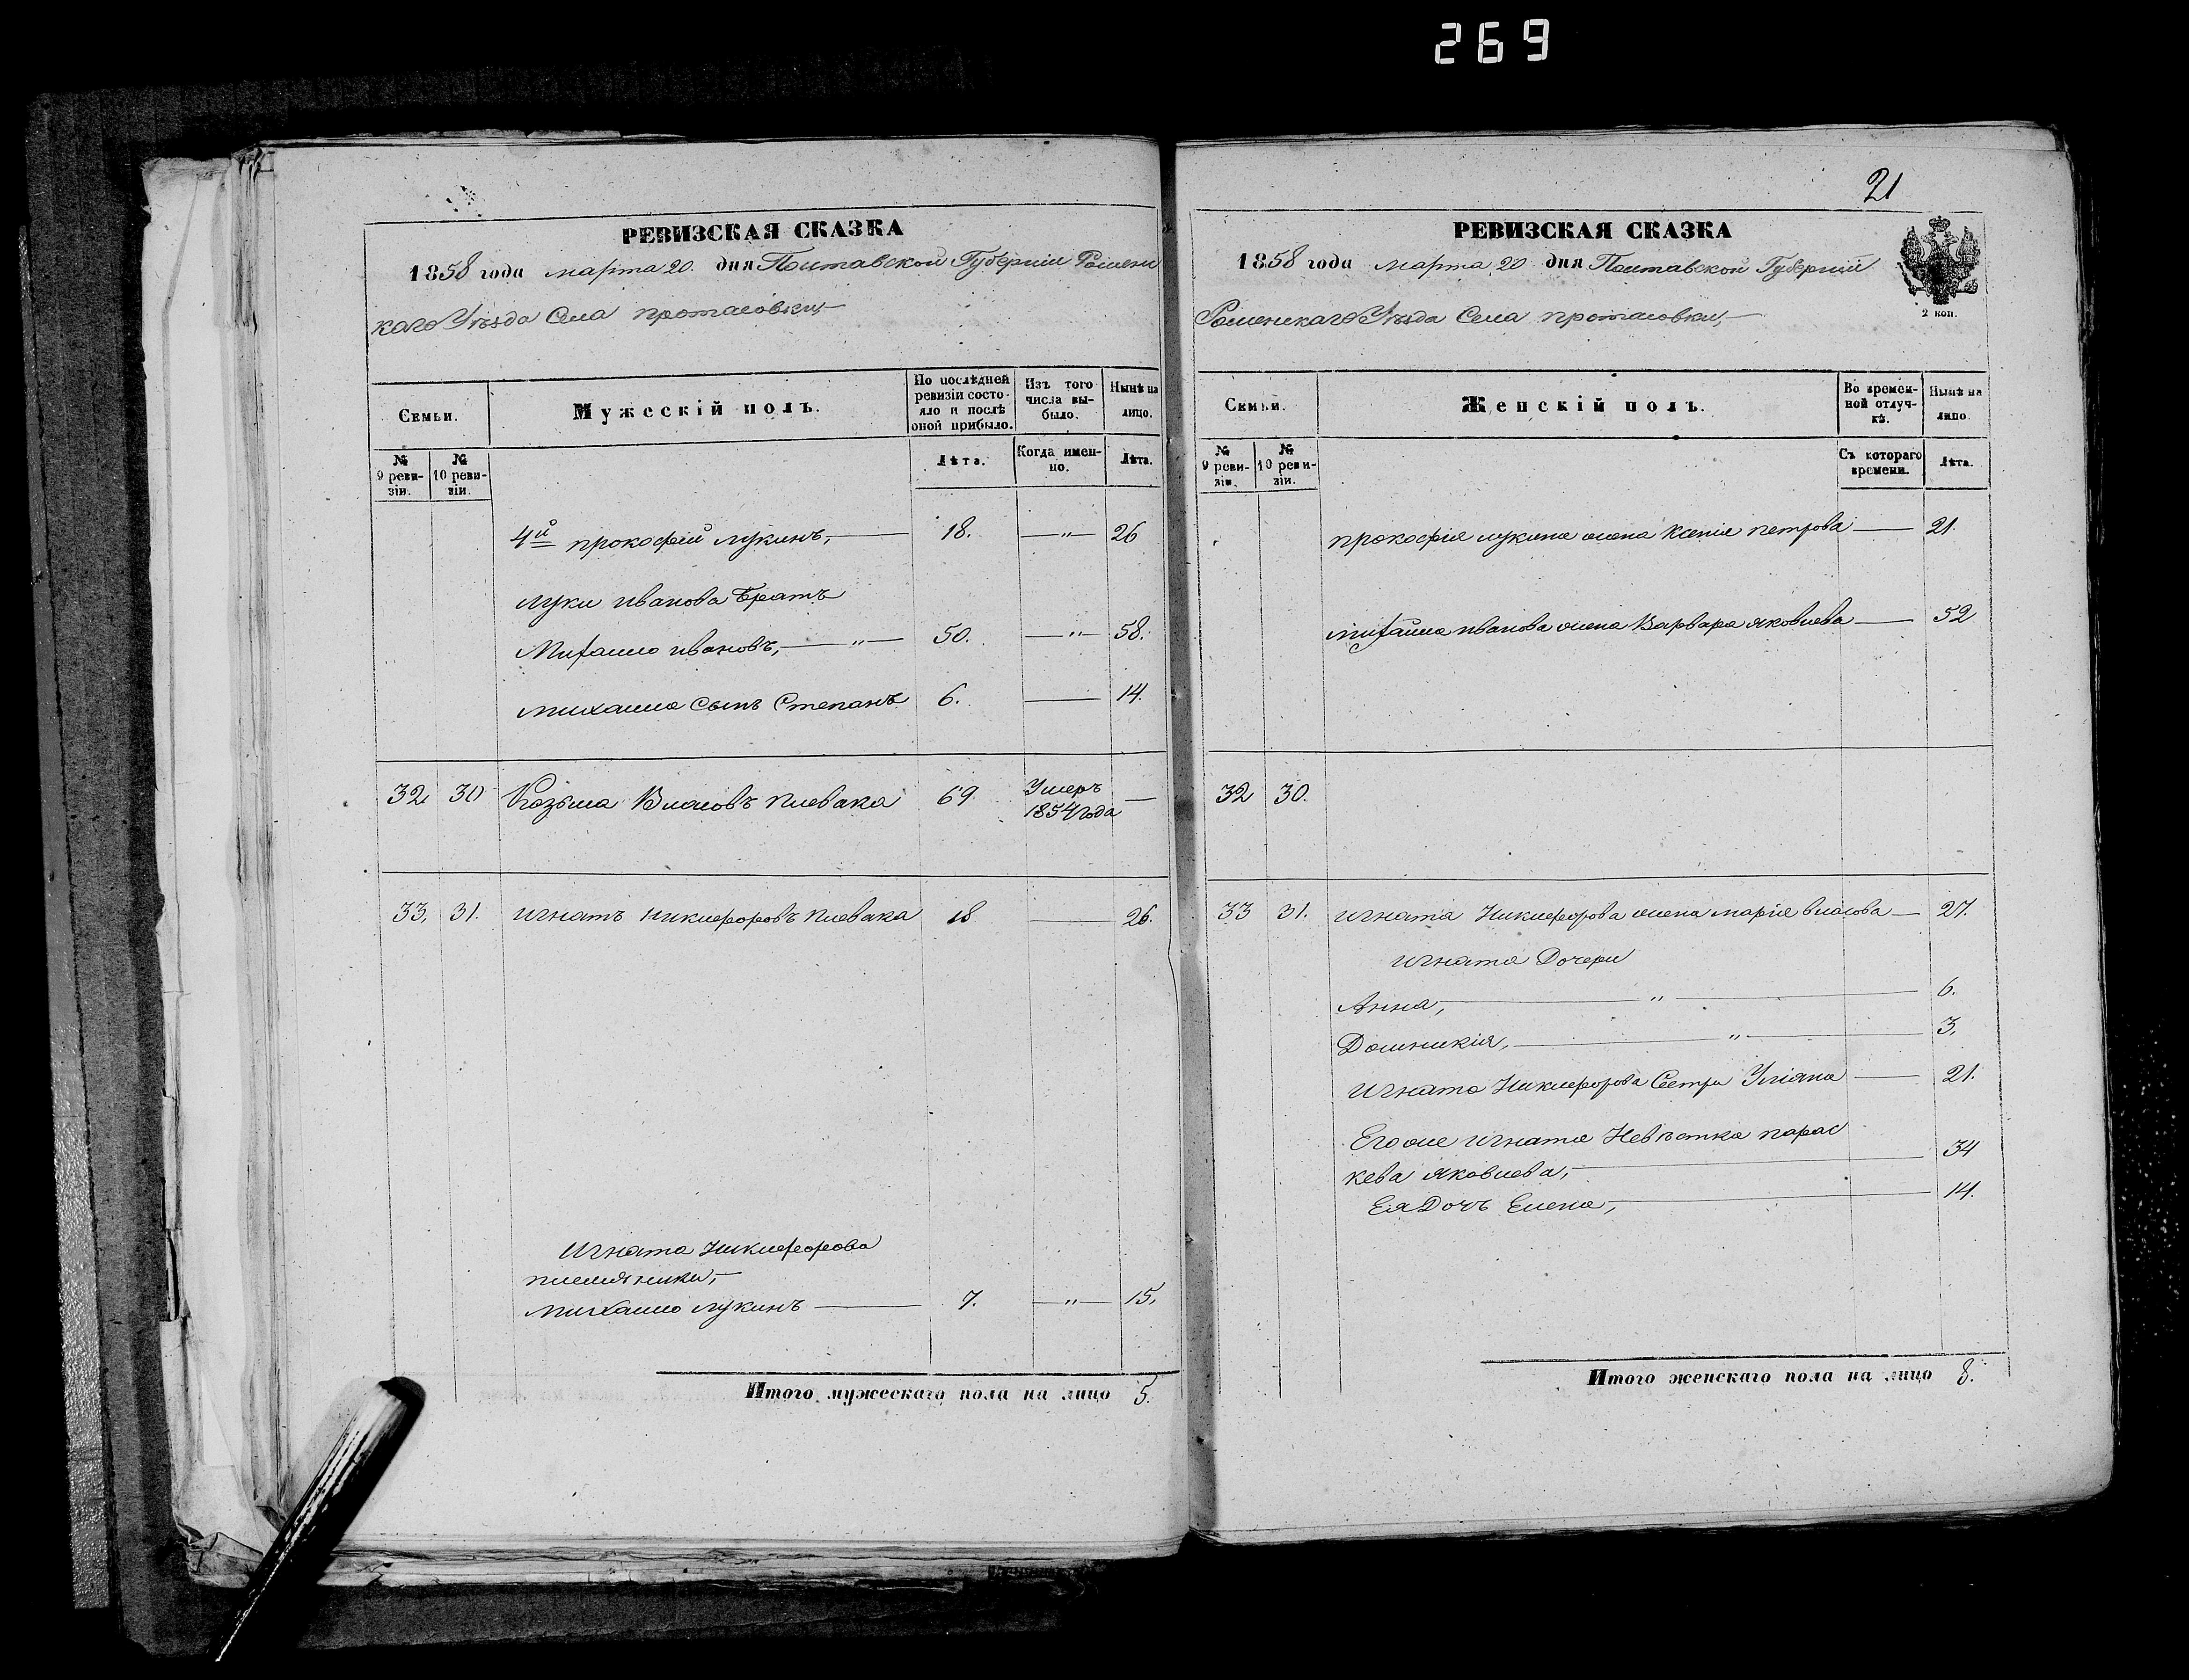 269
РЕВИЗСКАЯ СКАЗКА
1858 года марта 20. дня Полтавской Губерніи Роменс
каго Уѣзда Села протасовки,
Семьи.
Мужескій полъ.
По послѣдней ревизіи состояло и послѣ оной прибыло.
Изъ того числа выбыло.
Нынѣ на лицо.
№ 9 ревизіи.
№ 10 ревизіи.
Лѣта.
Когда именно.
Лѣта.
4й прокофій лукинъ, 18. — " — 26
луки иванова Братъ
Михайло ивановъ, — " — 50. — " — 58.
михайла Сынъ Степанъ 6. — 14.
32 30 Козьма Власовъ плевака 69 Умеръ 1854 года —
33, 31. игнатъ никифоровъ плевака 18 — 26.
Игната Никифорова
племяники,
михайло лукинъ — 7. — " — 15.
Итого мужескаго пола на лицо 5.
21
РЕВИЗСКАЯ СКАЗКА
1858 года марта 20 дня Полтавской Губерніи
Роменскаго Уѣзда Села протасовки,
2 коп.
Семьи.
Женскій полъ.
Во временной отлучкѣ.
Нынѣ на лицо.
№ 9 ревизіи.
№ 10 ревизіи.
Съ котораго времени.
Лѣта.
прокофія лукина жена Ксенія петрова — 21.
михайла иванова жена Варвара яковлева — 52
32 30.
33 31. игната Никифорова жена марія власова — 27.
игната Дочери
Анна, — " — 6.
Домникія, — " — 3.
Игната Никифорова Сестра Уліяна — 21.
Его же игната Невѣстка парас
кева яковлева, — 34
Ея Дочь Елена, — 14.
Итого женскаго пола на лицо 8.